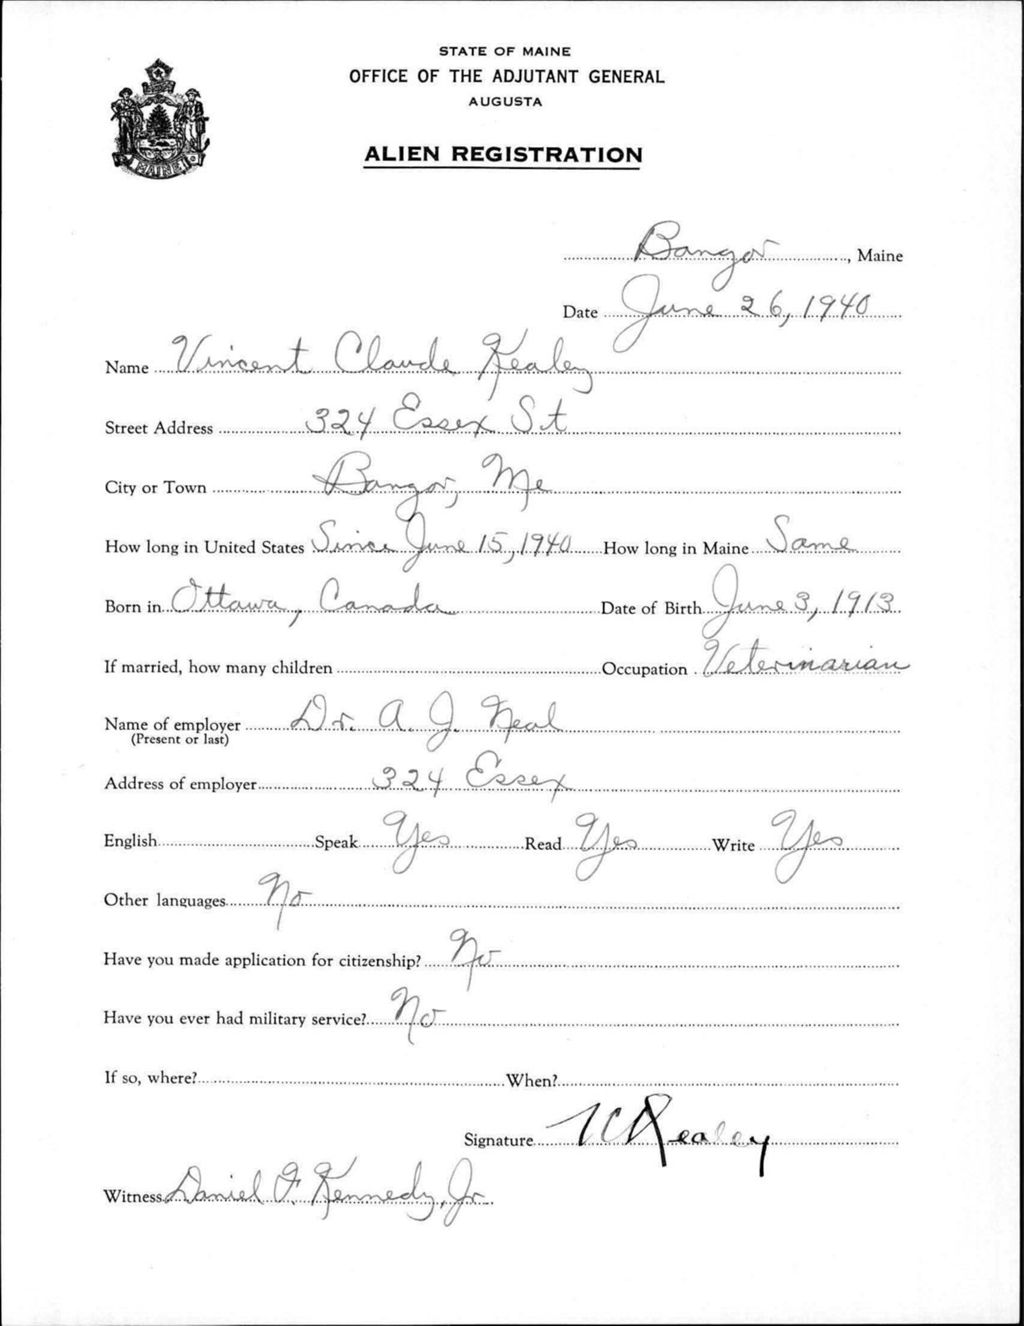 STATE OF MAINE
OFFICE OF THE ADJUTANT GENERAL
AUGUSTA
ALIEN REGISTRATION
MAINE
Bangor, Maine
Date June 26, 1940
Name Vincent Claude Kealey
Street Address 324 Essex St
City or Town Bangor, Me
How long in United States Since June 15, 1940 How long in Maine Same
Born in Ottawa, Canada Date of Birth June 3, 1913
If married, how many children Occupation Veterinarian
Name of employer Dr. A. J. Neal
(Present or last)
Address of employer 324 Essex
English Speak Yes Read Yes Write Yes
Other languages No
Have you made application for citizenship? No
Have you ever had military service? No
If so, where? When?
Signature VC Kealey
Witness Daniel F. Kennedy, Jr.